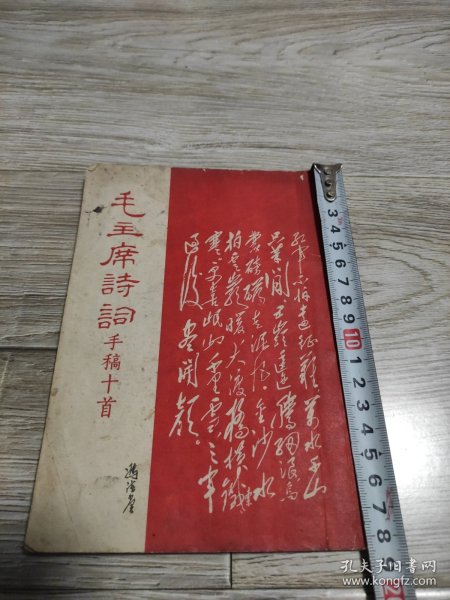 毛主席詩詞
手稿十首
红军不怕远征难萬水千山
只等闲五嶺逶迤腾细浪烏
蒙磅礴走泥丸金沙水
拍雲崖暖大渡橋横鐵索
寒更喜岷山千里雪三军
过後尽開颜
3 4 5 6 7 8 9 10 1 2 3 4 5 6 7 8 9
孔夫子旧书网